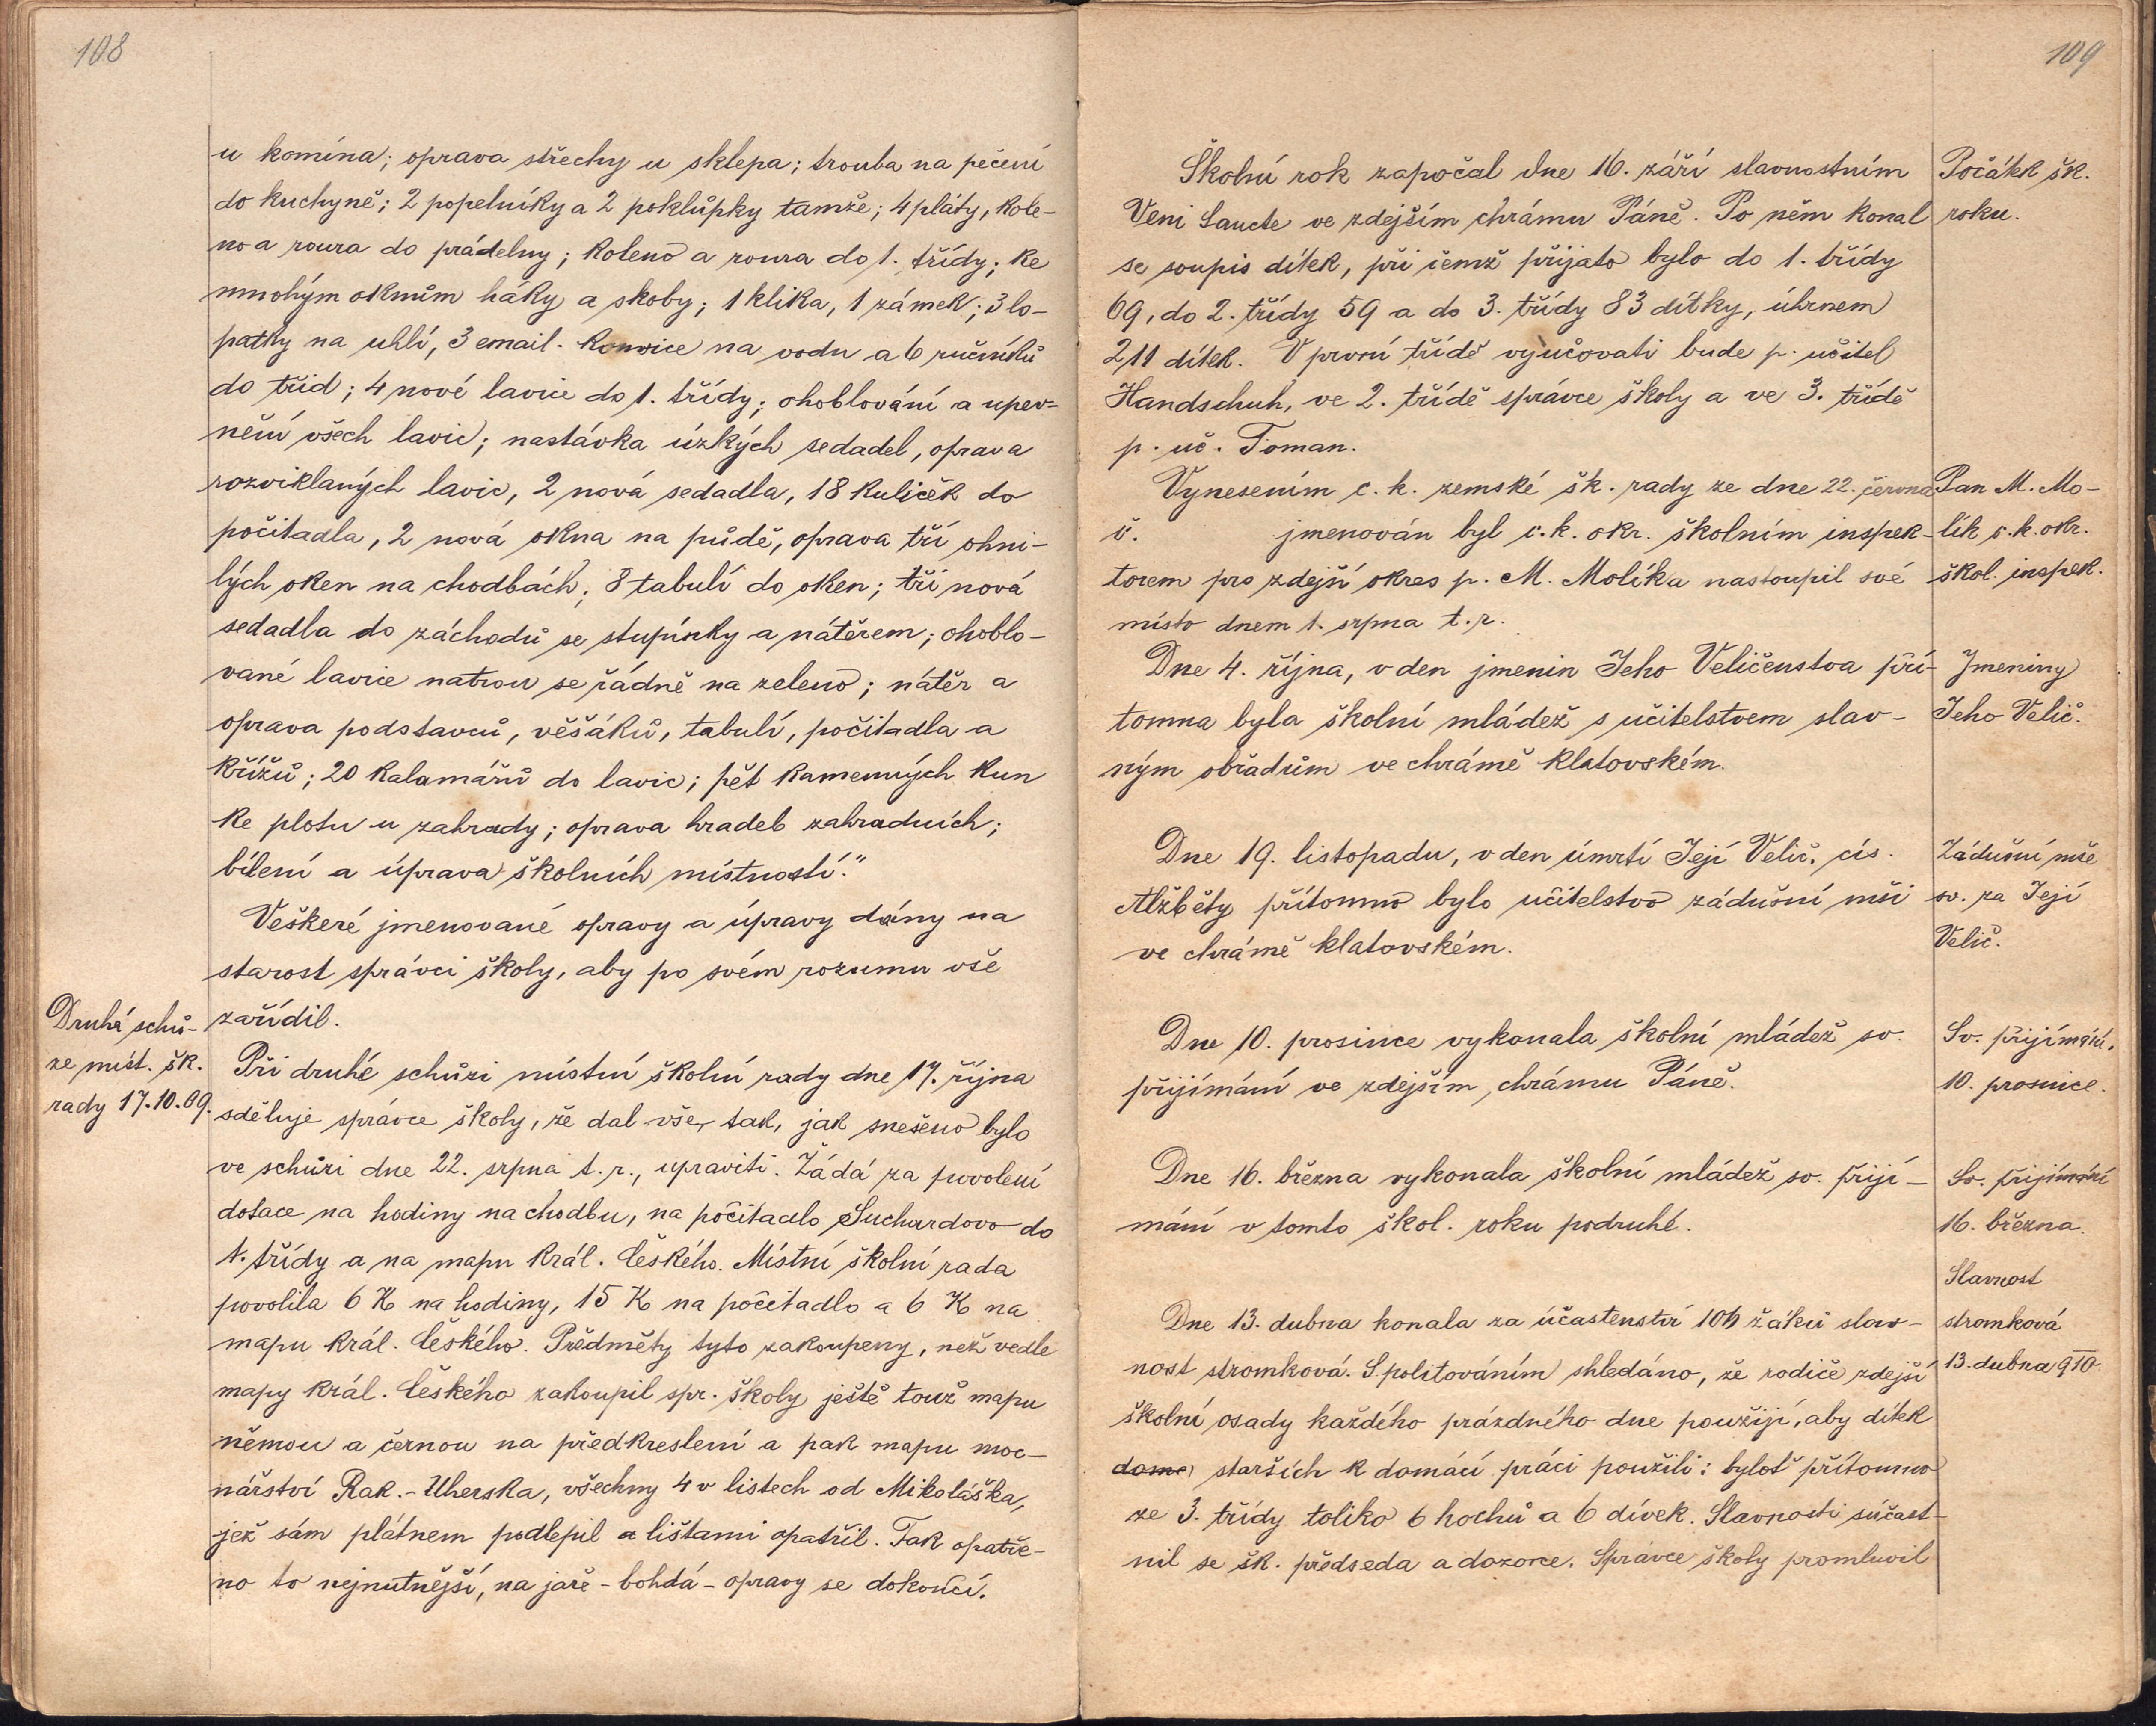 108
u komína; oprava střechy u sklepa; trouba na pečení
do kuchyně; 2 popelníky a 2 poklůpky tamže; 4 pláty, kole-
no a roura do prádelny; koleno a roura do 1. třídy; ke
mnohým oknům háky a skoby; 1 klika, 1 zámek; 3 lo-
patky na uhlí, 3 email. konvice na vodu a 6 ručníků
do tříd; 4 nové lavice do 1. třídy; ohoblování a upev-
nění všech lavic; nastávka úzkých sedadel, oprava
rozviklaných lavic, 2 nová sedadla, 18 kuliček do
počitadla, 2 nová okna na půdě, oprava tří ohni-
lých oken na chodbách; 8 tabulí do oken; tři nová
sedadla do záchodů se stupínky a nátěrem; ohoblo-
vané lavice natrou se řádně na zeleno; nátěr a
oprava podstavců, věšáků, tabulí, počitadla a
křížů; 20 kalamářů do lavic; pět kamenných kun
ke plotu u zahrady; oprava hradeb zahradních;
bílení a úprava školních místností."
Veškeré jmenované opravy a úpravy dány na
starost správci školy, aby po svém rozumu vše
zařídil.
Druhá schů-
ze míst. šk.
rady 17.10.09.
Při druhé schůzi místní školní rady dne 17. října
sděluje správce školy, že dal vše, tak, jak snešeno bylo
ve schůzi dne 22. srpna t. r., upraviti. Žádá za povolení
dotace na hodiny na chodbu, na počitadlo Suchardovo do
1. třídy a na mapu král. Českého. Místní školní rada
povolila 6 K na hodiny, 15 K na počitadlo a 6 K na
mapu král. Českého. Předměty tyto zakoupeny, než vedle
mapy král. Českého zakoupil spr. školy ještě touž mapu
němou a černou na předkreslení a pak mapu moc-
nářství Rak.-Uherska, všechny 4 v listech od Mikoláška,
jež sám plátnem podlepil a lištami opatřil. Tak opatře-
no to nejnutnější, na jaře - bohdá - opravy se dokončí.
109
Školní rok započal dne 16. září slavnostním
Veni Sancte ve zdejším chrámu Páně. Po něm konal
se soupis dítek, při čemž přijato bylo do 1. třídy
69, do 2. třídy 59 a do 3. třídy 83 dítky, úhrnem
211 dítek. V první třídě vyučovati bude p. učitel
Handschuh, ve 2. třídě správce školy a ve 3. třídě
p. uč. Toman.
Počátek šk.
roku.
Vynesením c. k. zemské šk. rady ze dne 22. června
č. jmenován byl c. k. okr. školním inspek-
torem pro zdejší okres p. M. Molík a nastoupil své
místo dnem 1. srpna t. r.
Pan M. Mo-
lík c. k. okr.
škol. inspek.
Dne 4. října, v den jmenin Jeho Veličenstva pří-
tomna byla školní mládež s učitelstvem slav-
ným obřadům ve chrámě klatovském.
Jmeniny
Jeho Velič.
Dne 19. listopadu, v den úmrtí Její Velič. cís.
Alžběty přítomno bylo učitelstvo zádušní mši
ve chrámě klatovském.
Zádušní mše
sv. za Její
Velič.
Dne 10. prosince vykonala školní mládež sv.
přijímání ve zdejším chrámu Páně.
Sv. přijímání.
10. prosince.
Dne 16. března vykonala školní mládež sv. přijí-
mání v tomto škol. roku podruhé.
Sv. přijímání
16. března.
Slavnost
stromková
13. dubna 910
Dne 13. dubna konala za účastenství 106 žáků slav-
nost stromková. S politováním shledáno, že rodiče zdejší
školní osady každého prázdného dne použijí, aby dítek
dome starších k domácí práci použili: byloť přítomno
ze 3. třídy toliko 6 hochů a 6 dívek. Slavnosti súčast-
nil se šk. předseda a dozorce. Správce školy promluvil